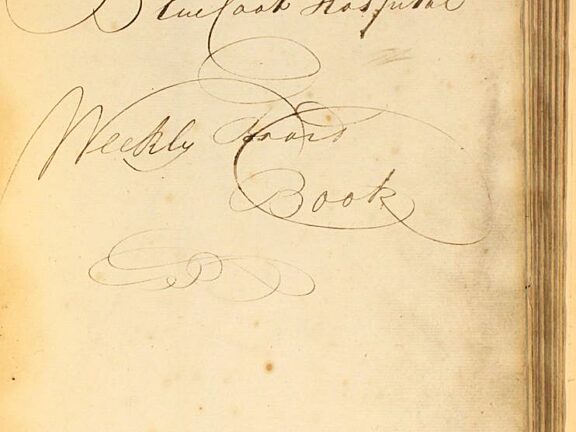 BlueCoat Hospital
Weekly
Book